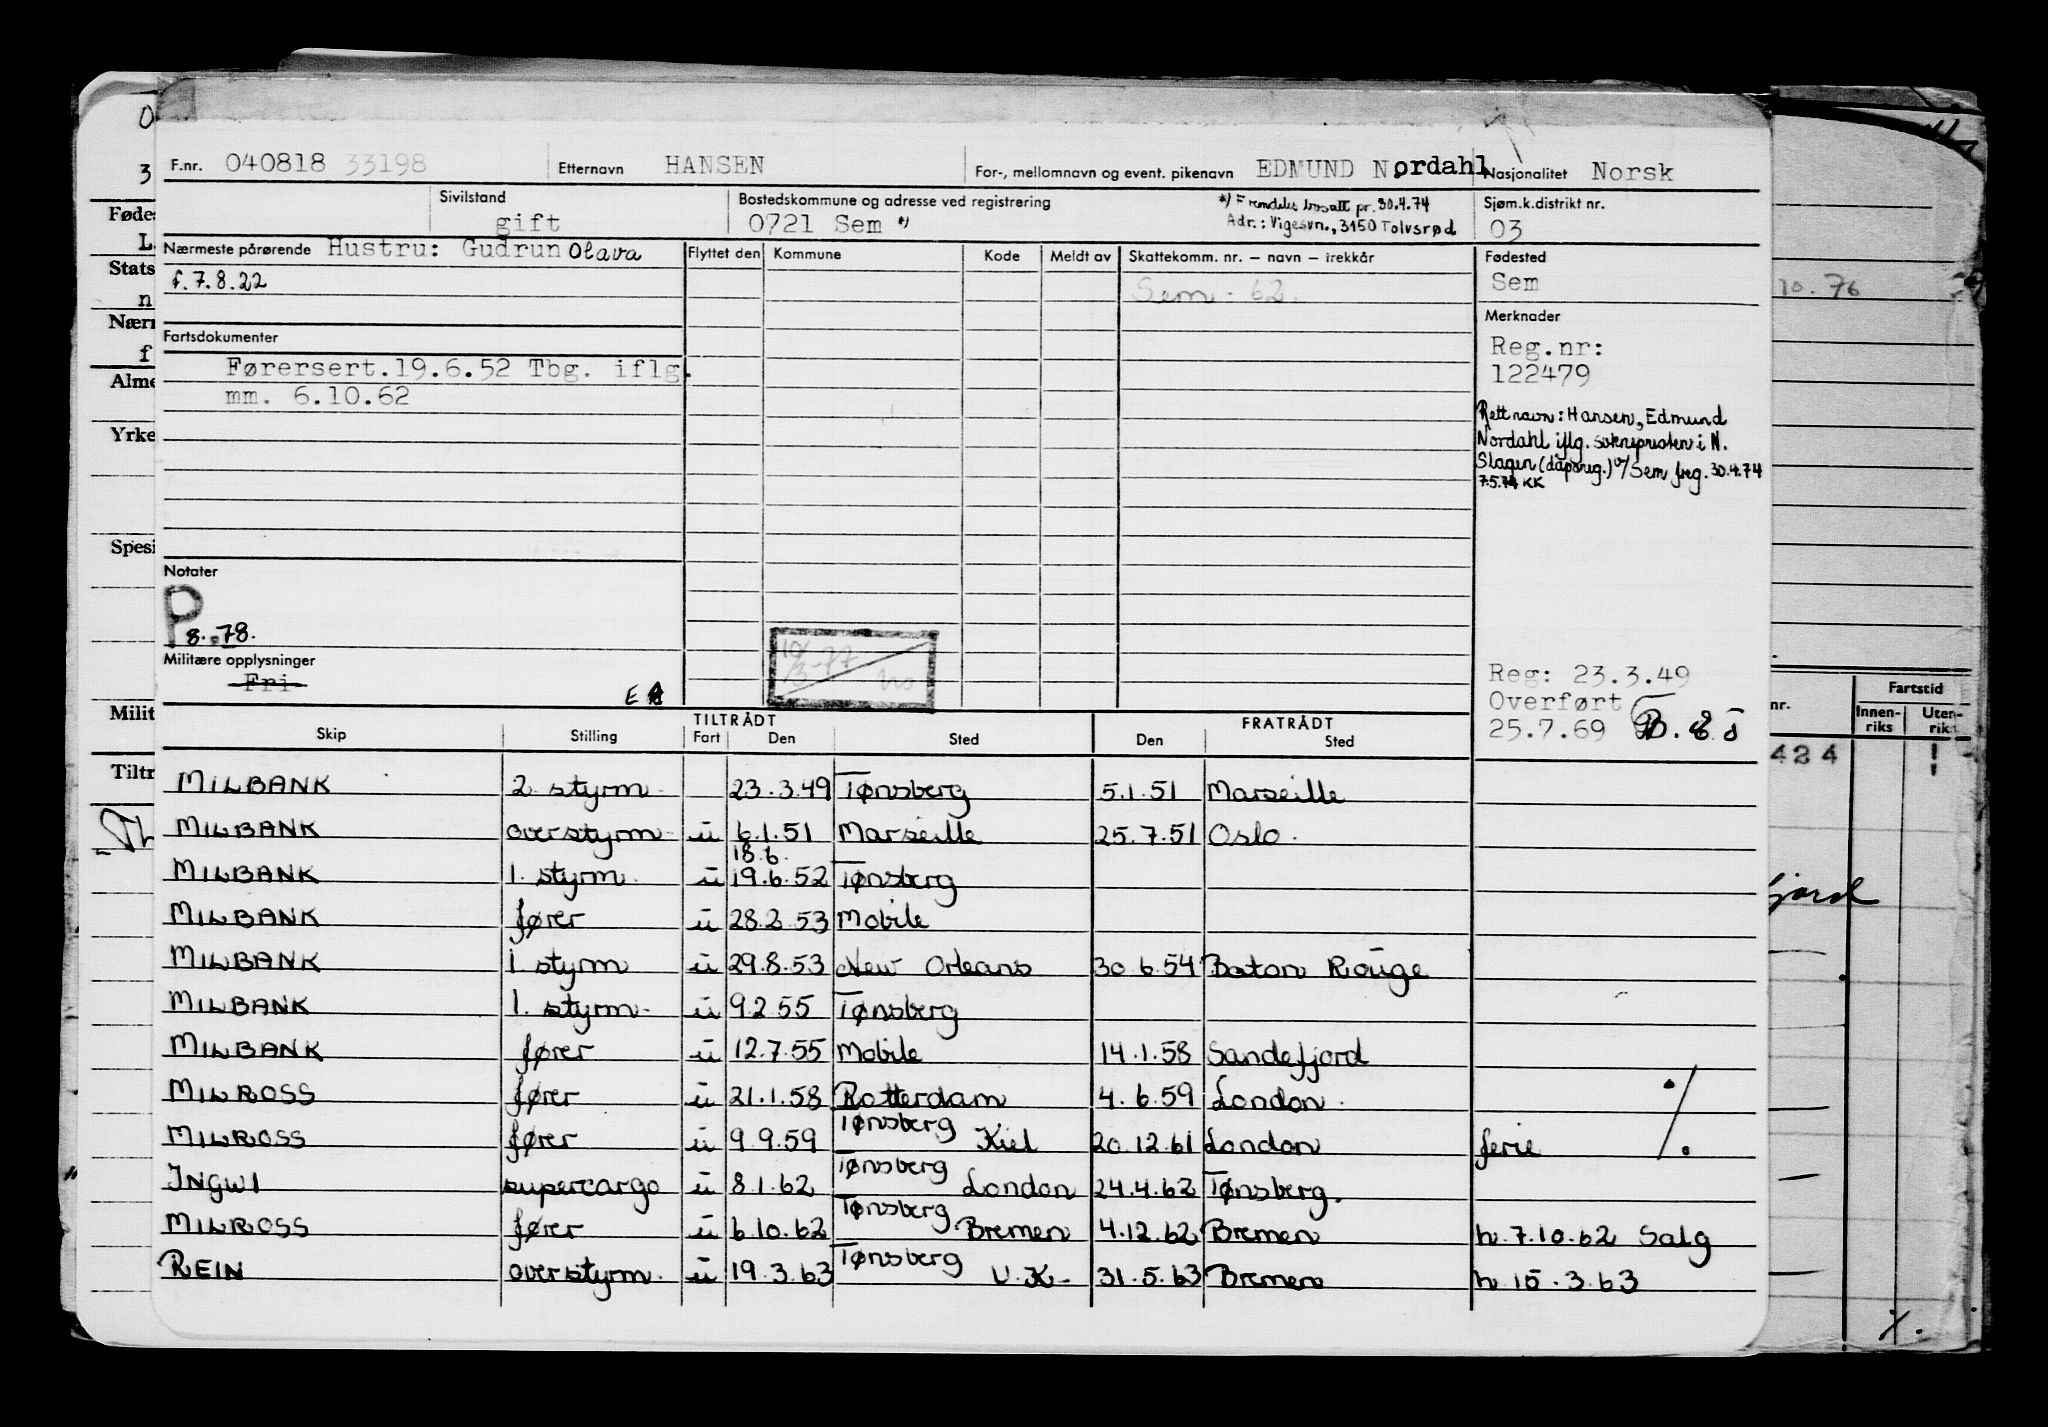 F.nr. 040818 33198 Etternavn HANSEN For-, mellomnavn og event. pikenavn EDMUND Nordahl Nasjonalitet Norsk
Sivilstand gift Bostedskommune og adresse ved registrering 0721 Sem *) Sjøm.k.distrikt nr. 03
*) Fremdeles bosatt pr. 30.4.74
Adr.: Vigesvn., 3150 Tolvsrød
Nærmeste pårørende Hustru: Gudrun Olava
f. 7.8.22
Flyttet den Kommune Kode Meldt av Skattekomm. nr. – navn – trekkår
Sem - 62.
Fødested
Sem
Merknader
Reg.nr:
122479
Rett navn: Hansen, Edmund
Nordahl iflg. soknepresten i N.
Slagen (dåpsreg.) v/Sem freg. 30.4.74
7.5.74 KK
Fartsdokumenter
Førersert.19.6.52 Tbg. iflg.
mm. 6.10.62
Notater
P 8.78.
10/3-77
Militære opplysninger
Fri
Reg: 23.3.49
Overført
25.7.69
TILTRÅDT FRATRÅDT
Skip Stilling Fart Den Sted Den Sted
MILBANK 2. styrm. 23.3.49 Tønsberg 5.1.51 Marseille
MILBANK overstyrm. u 6.1.51 Marseille 25.7.51 Oslo.
18.6.
MILBANK 1. styrm. u 19.6.52 Tønsberg
MILBANK fører u 28.2.53 Mobile
MILBANK 1. styrm u 29.8.53 New Orleans 30.6.54 Baton Rouge
MILBANK 1. styrm. u 9.2.55 Tønsberg
MILBANK fører u 12.7.55 Mobile 14.1.58 Sandefjord
MILROSS fører u 21.1.58 Rotterdam 4.6.59 London.
MILROSS fører u 9.9.59 Tønsberg Kiel 20.12.61 London ferie
INGWI supercargo u 8.1.62 Tønsberg London 24.4.62 Tønsberg.
MILROSS fører u 6.10.62 Tønsberg Bremen 4.12.62 Bremen h. 7.10.62 Salg
REIN overstyrm. u 19.3.63 Tønsberg U.K. 31.5.63 Bremen h 15.3.63
Føde
Stats
Nær
Alme
Yrke
Spesi
Milit
Tiltr
10.76
nr.
Fartstid
Innen-riks Uten-rik
424
fjord